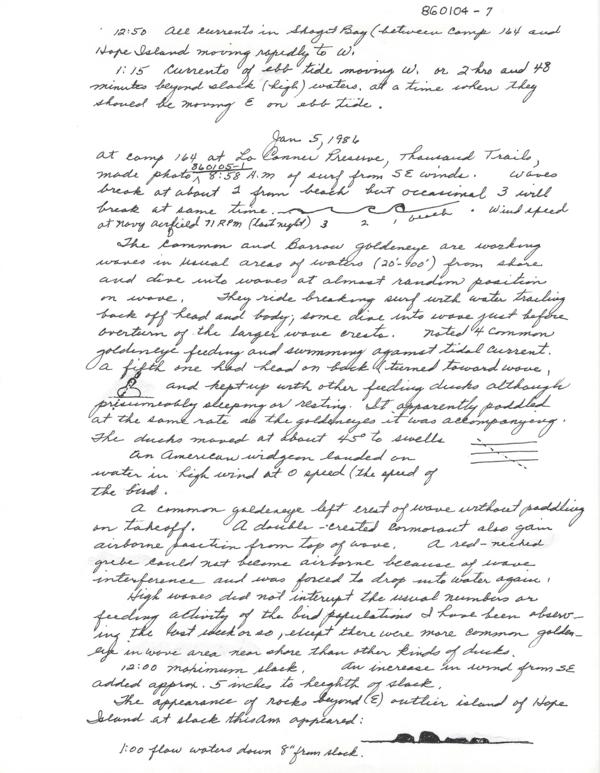 860104-7
12:50 All currents in Skagit Bay (between Camp 164 and
Hope Island moving rapidly to W.
1:15 Currents of ebb tide moving W. or 2 hrs and 48
minutes beyond slack (high) waters. at a time when they
should be moving E on ebb tide.
Jan 5, 1986
At camp 164 at La Conner Preserve, Thousand Trails,
made photo 860105-1 8:58 A.M of surf from SE winds. Waves
break at about 2 from beach but occasional 3 will
break at same time. 3 2 1 beach. Wind speed
at Navy airfield 71 RPM (last night)
The Common and Barrow goldeneye are working
waves in usual areas of waters (20'-400') from shore
and dive into waves at almost random position
on wave. They ride breaking surf with water trailing
back off head and body; some dive into wave just before
overturn of the larger wave crests. Noted 4 common
goldeneye feeding and swimming against tidal current.
A fifth one had head on back (turned toward wave,
and kept up with other feeding ducks although
presumeably sleeping or resting. It apparently paddled
at the same rate as the goldeneyes it was accompanying.
The ducks moved at about 45° to swells
An American widgeon landed on
water in high wind at 0 speed (the speed of
the bird.
A common goldeneye left crest of wave without paddling
on takeoff. A double-crested Cormorant also gain
airborne position from top of wave. A red-necked
grebe could not become airborne because of wave
interference and was forced to drop into water again.
High waves did not interupt the usual numbers or
feeding activity of the bird populations I have been observ-
ing the last week or so, except there were more common golden-
eye in wave area near shore than other kinds of ducks.
12:00 maximum slack. An increase in wind from SE
added approx. 5 inches to heighth of slack.
The appearance of rocks beyond (E) outlier island of Hope
Island at slack this am appeared:
1:00 flow waters down 8" from slack.